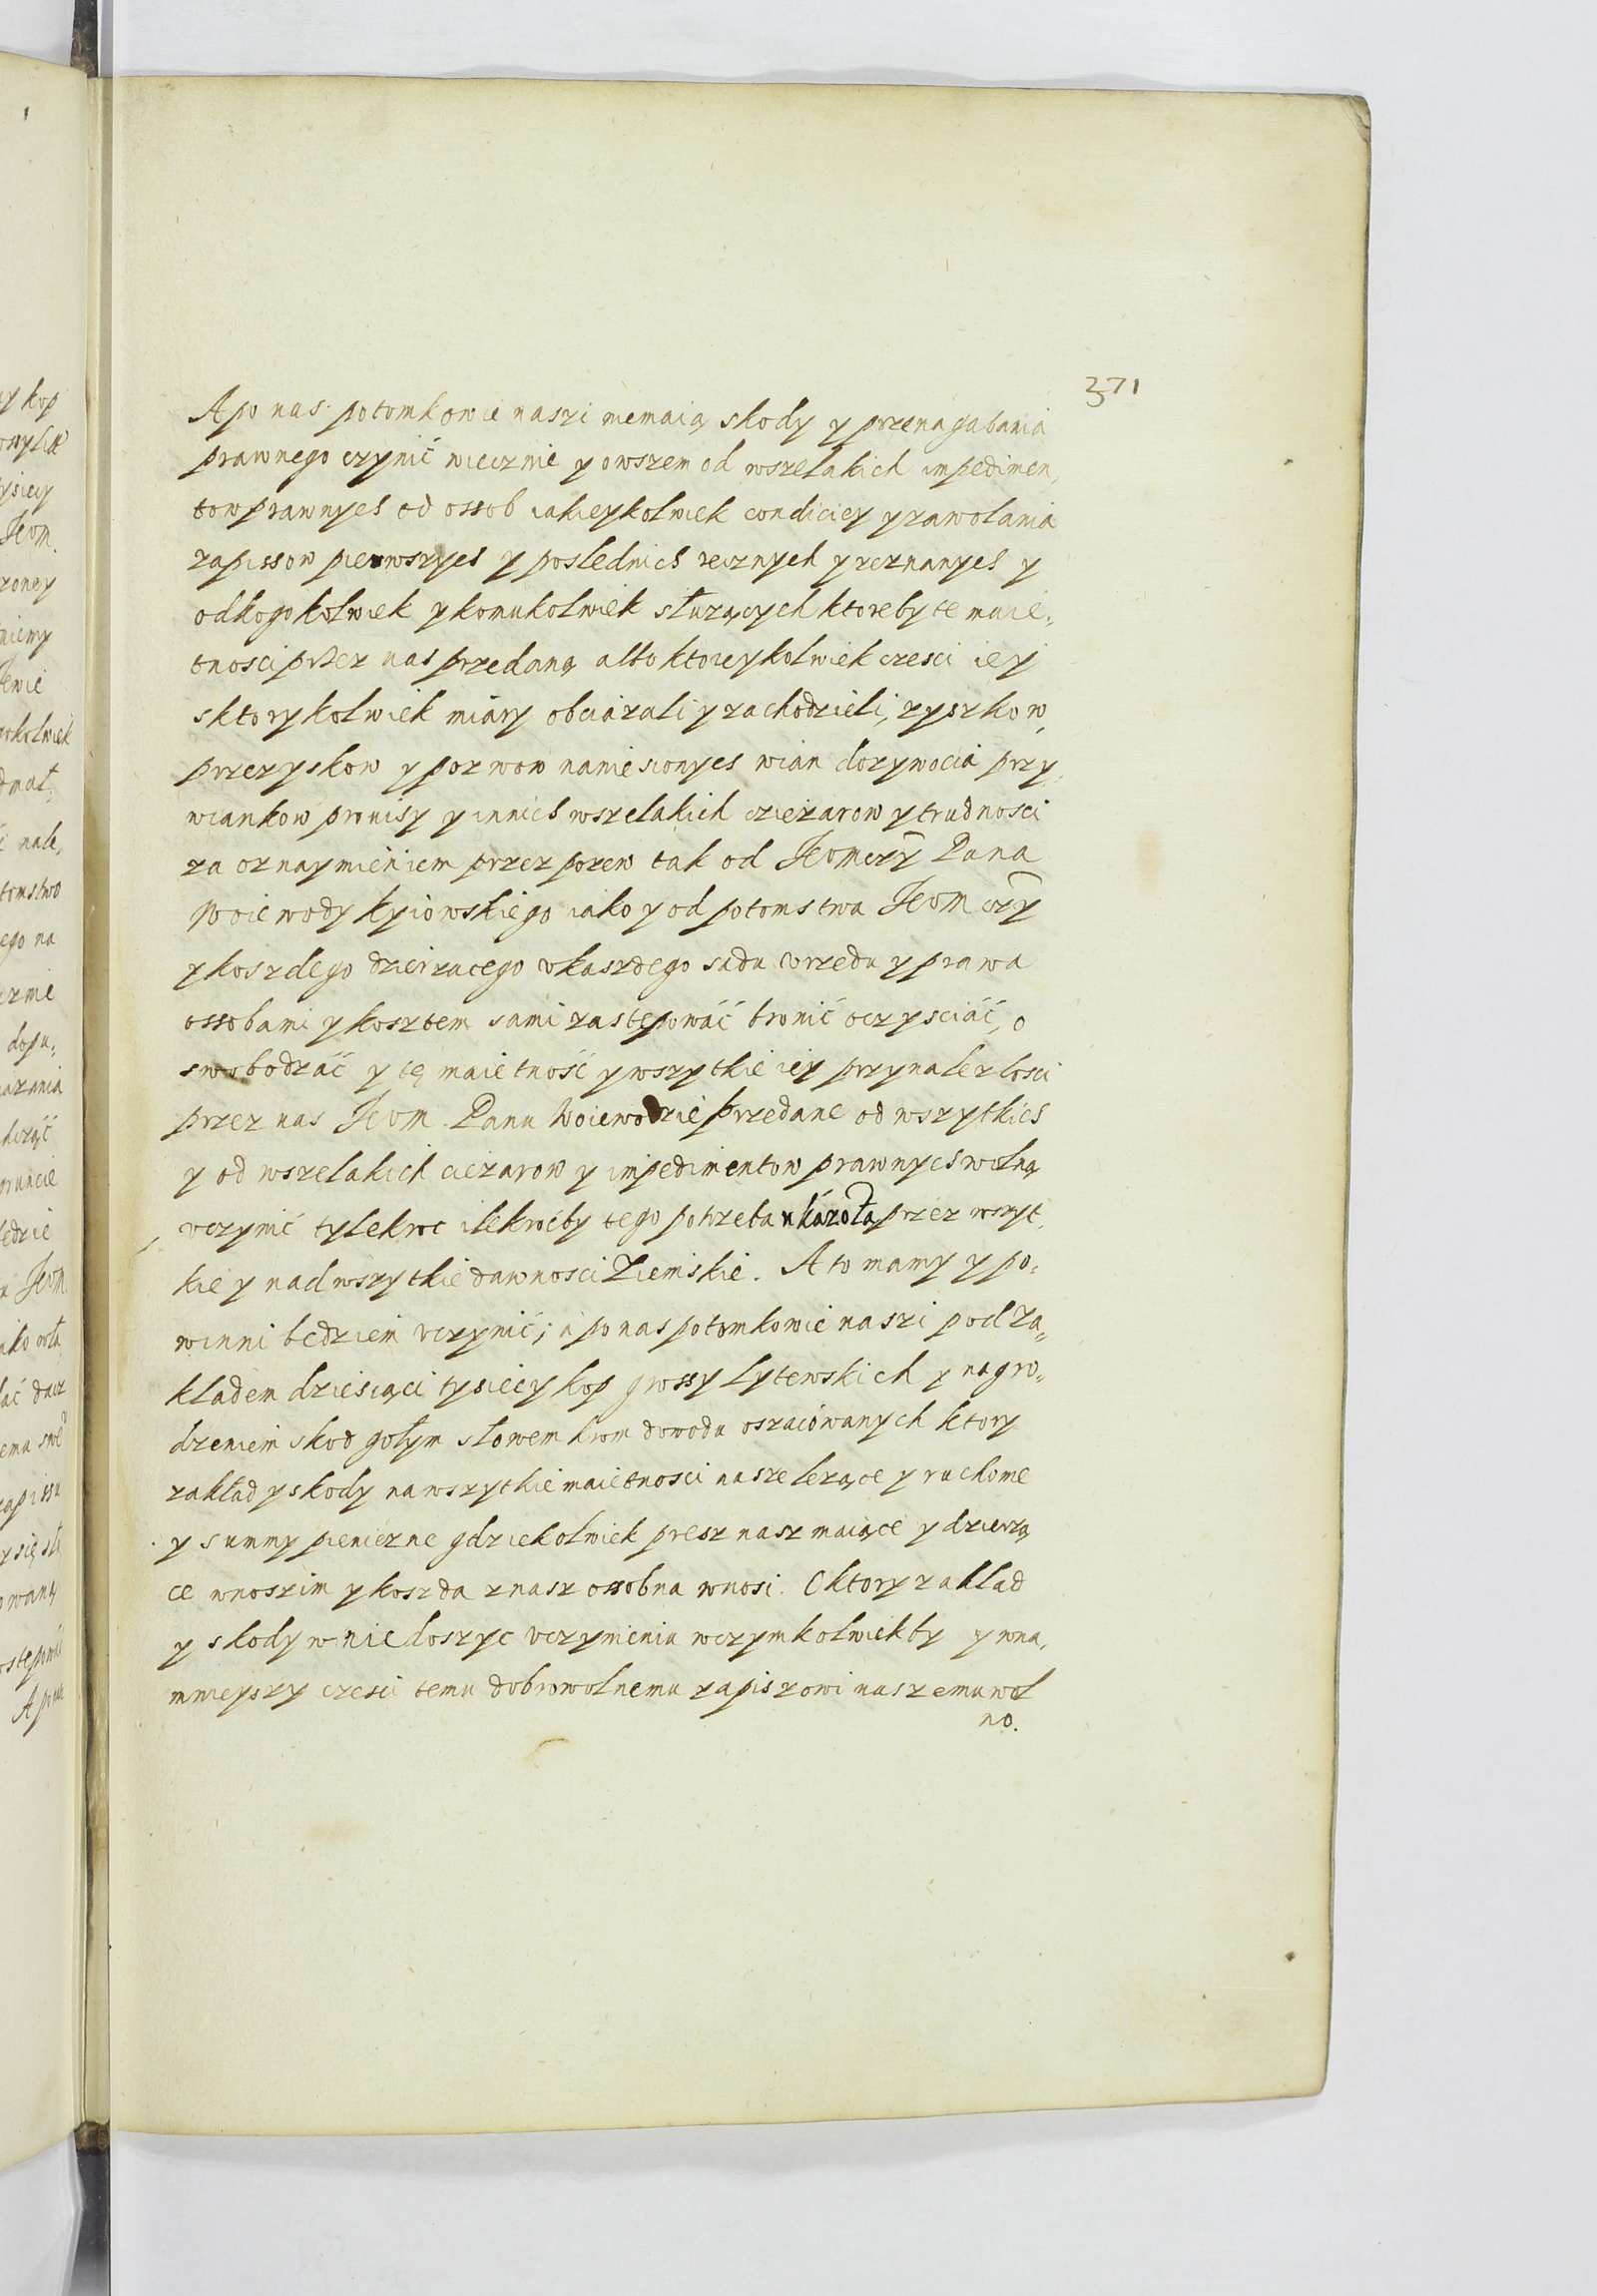 371
A po nas potomkowie naszi niemaią skody y przenagabania
prawnego czynić wiecznie y owszem od wszelakich impedimen,
tow prawnych od ossob iakieykolwiek condiciey y zawolania
zapissow pierwszych y poslednich recznych y zeznanych y
odkogokolwiek y komukolwiek służących ktoreby te maie,
tnosci przez nas przedaną albo ktoreykolwiek czesci iey
sktorykolwiek miary obciażali y zachodzieli, zyszkow,
przezyskow y pozwow naniesionych wian dozywocia przy,
wiankow prowisy y innich wszelakich cziężarow y trudnosci
za oznaymieniem przez pozew tak od Jeomczy Pana
Woiewody kyiowskiego iako y od potomstwa Jeom czy
y koszdego dzierzacego v kaszdego sadu vrzedu y prawa
ossobami y kosztem sami zastępować bronić oczysciać, o
swobodzać y tę maietność y wszytkie iey przynalezłosci
przez nas Jeom. Panu Woiewodzie przedane od wszytkich
y od wszelakich ciezarow y impedimentow prawnych wolną
vczynić tylekroc ilekroćby tego potrzeba ukázoła przez wszyt,
kie y nad wszytkie dawnosci Ziemskie. A to mamy y po,
winni będziem vczynić; a po nas potomkowie naszi pod za,,
kladem dziesiąci tysiecy kop grossy Lytewskich y nagro,,
dzeniem skod gołym słowem krom dowodu oszacowanych ktory
zakład y skody na wszytkie maietnosci nasze lezące y ruchome
y summy pienieżne gdziekolwiek presz nasz maiące y dzierzą
ce wnoszim y koszda z nasz ossobna wnosi. O ktory zaklad
y skody w niedoszyc vczynienia wczymkolwiekby y wna,
mnieyszy czesci temu dobrowolnemu zapiszowi naszemu wol
no.